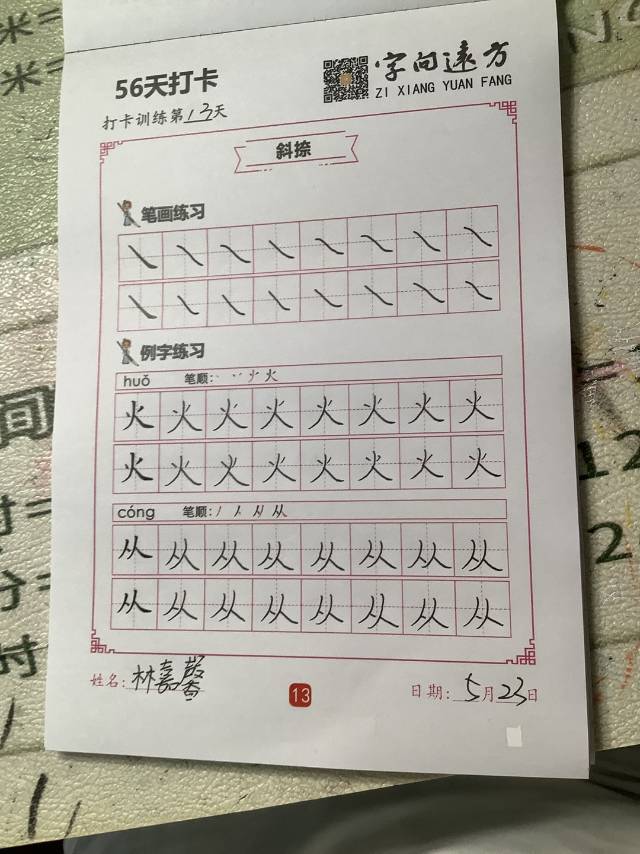 56天打卡
字向遠方
ZI XIANG YUAN FANG
打卡训练第13天
斜捺
笔画练习
例字练习
huǒ 笔顺:
火火火火火火火火
火火火火火火火火
cóng 笔顺:
从从从从从从从从
从从从从从从从从
姓名:林嘉馨
13
日期:5月23日